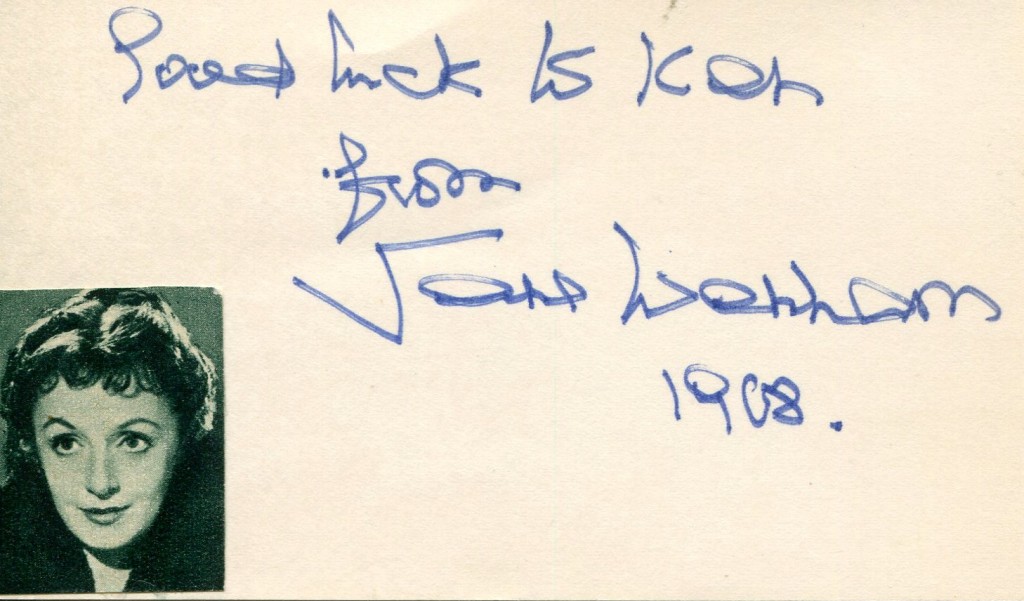 Good luck to Ken
from
Jane Wenham
1968.